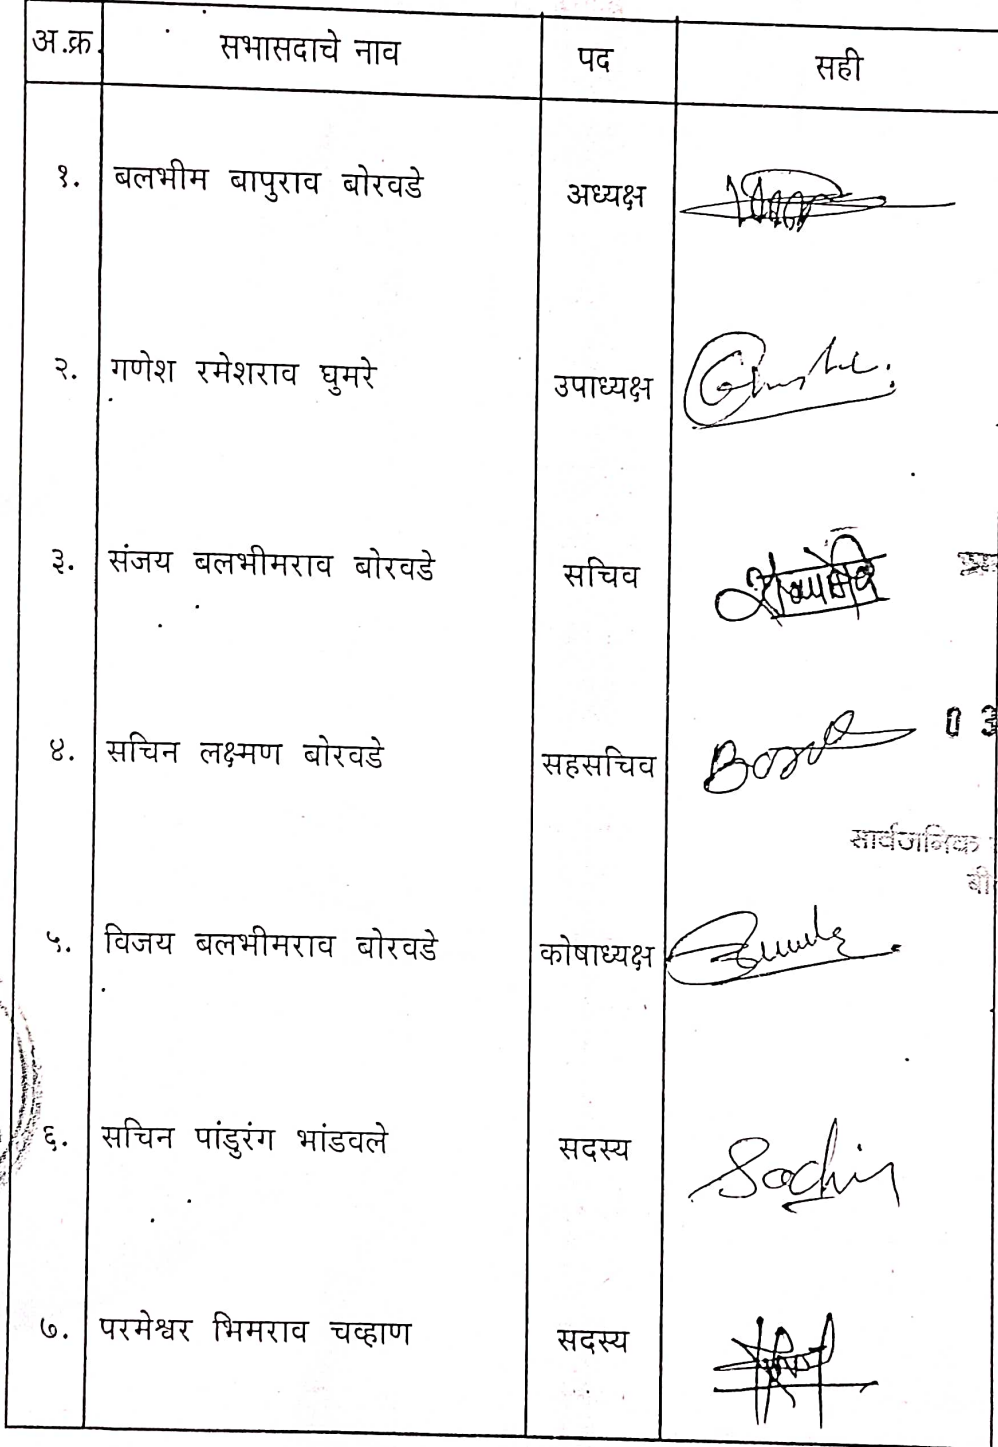 अ.क्र. सभासदाचे नाव पद सही
१. बलभीम बापुराव बोरवडे अध्यक्ष
२. गणेश रमेशराव घुमरे उपाध्यक्ष
३. संजय बलभीमराव बोरवडे सचिव
४. सचिन लक्ष्मण बोरवडे सहसचिव
0 3
सार्वजनिक
बी
५. विजय बलभीमराव बोरवडे कोषाध्यक्ष
६. सचिन पांडुरंग भांडवले सदस्य Sachin
७. परमेश्वर भिमराव चव्हाण सदस्य